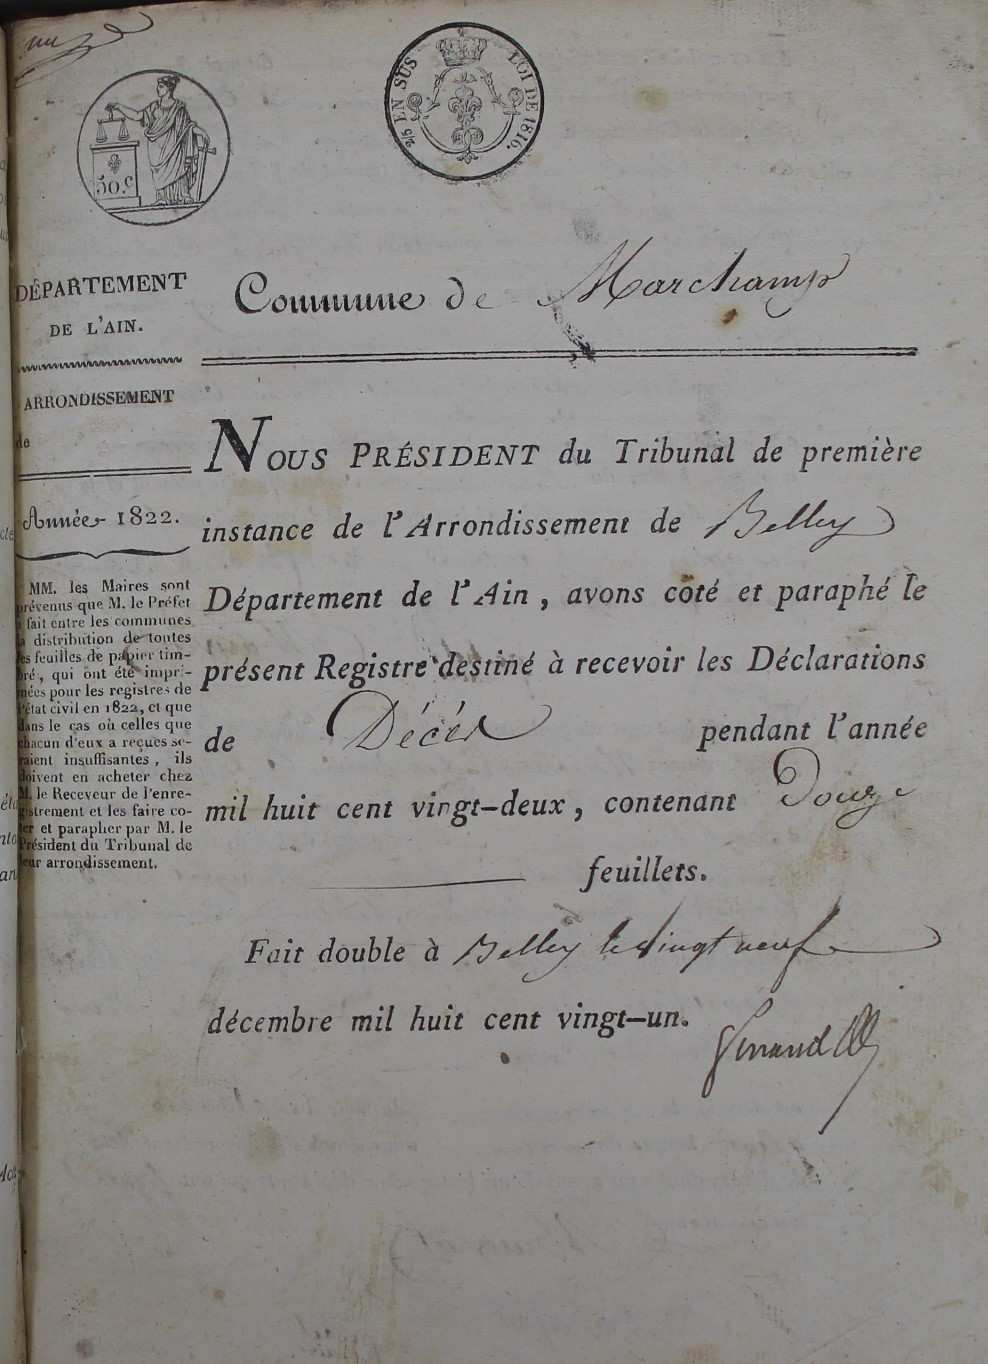 50.c
2/5 EN SUS LOI DE 1816.
DÉPARTEMENT
DE L'AIN.
ARRONDISSEMENT
de
Année 1822.
MM. les Maires sont
prévenus que M. le Préfet
a fait entre les communes
la distribution de toutes
les feuilles de papier tim-
bré, qui ont été impri-
mées pour les registres de
l'état civil en 1822, et que
dans le cas où celles que
chacun d'eux a reçues se-
raient insuffisantes, ils
doivent en acheter chez
M. le Receveur de l'enre-
gistrement et les faire co-
ter et parapher par M. le
Président du Tribunal de
leur arrondissement.
Commune de Marchamp
NOUS PRÉSIDENT du Tribunal de première
instance de l'Arrondissement de Belley
Département de l'Ain, avons côté et paraphé le
présent Registre destiné à recevoir les Déclarations
de Décés pendant l'année
mil huit cent vingt-deux, contenant Douze
feuillets.
Fait double à Belley le vingt neuf
décembre mil huit cent vingt-un.